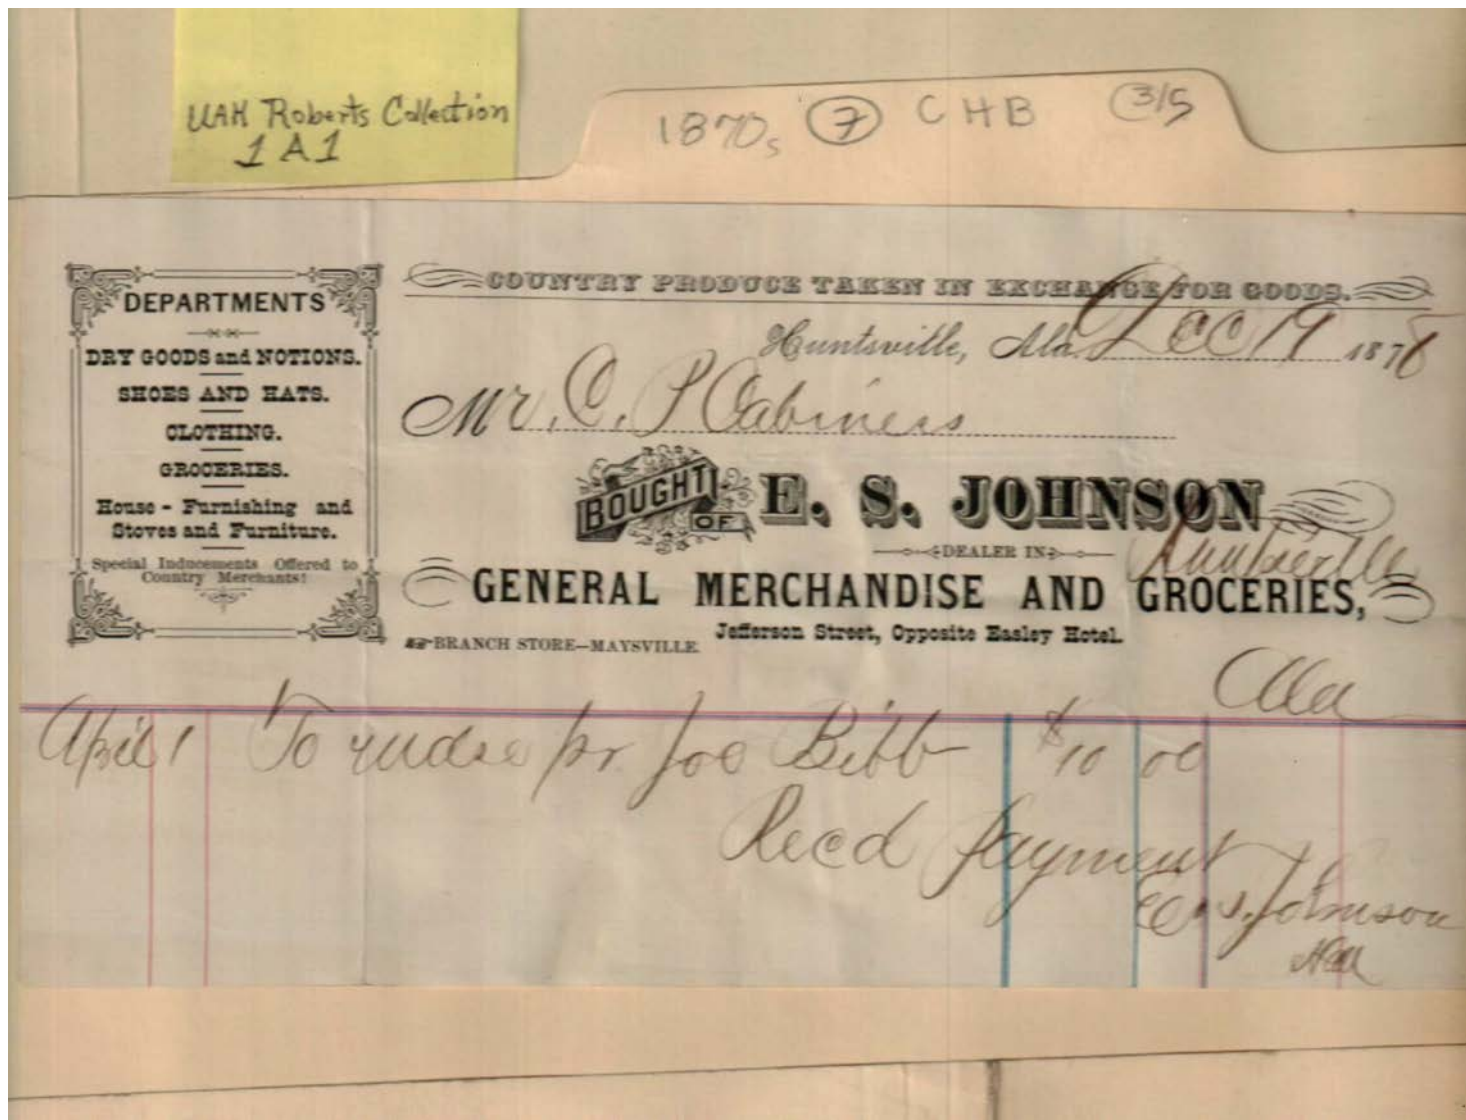 UAH Roberts Collection
1A1
1870s 7 CHB 3/5
DEPARTMENTS
DRY GOODS and NOTIONS.
SHOES AND HATS.
CLOTHING.
GROCERIES.
House - Furnishing and
Stoves and Furniture.
Special Inducements Offered to
Country Merchants!
COUNTRY PRODUCE TAKEN IN EXCHANGE FOR GOODS.
Huntsville, Ala. Dec 19 1878
Mr. C. P Cabiness
BOUGHT OF E. S. JOHNSON
DEALER IN
GENERAL MERCHANDISE AND GROCERIES,
Jefferson Street, Opposite Easley Hotel.
BRANCH STORE—MAYSVILLE.
Ala
April 1 To mdse pr Joe Bibb $10 00
Recd payment
E. S. Johnson